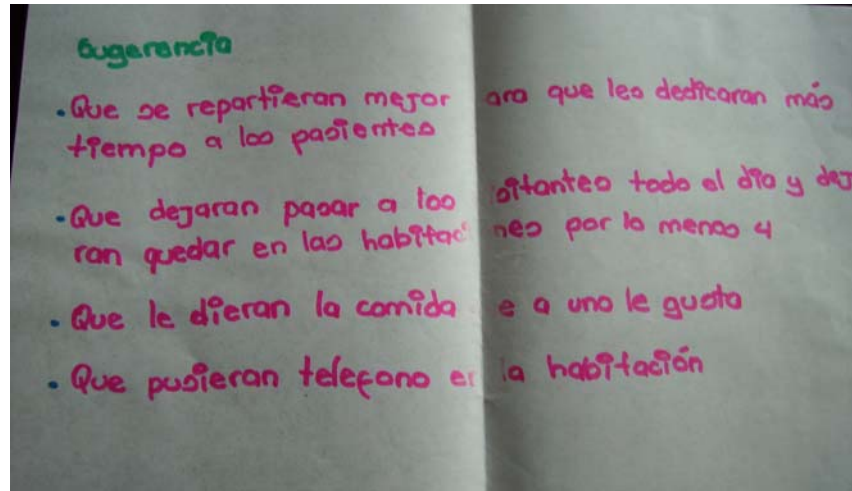 Sugerencia
• Que se repartieran mejor ara que les dedicaran más
tiempo a los pasientes
• Que dejaran pasar a los sitantes todo el día y dej
ran quedar en las habitac nes por lo menos 4
• Que le dieran la comida e a uno le gusta
• Que pusieran telefono en la habitación